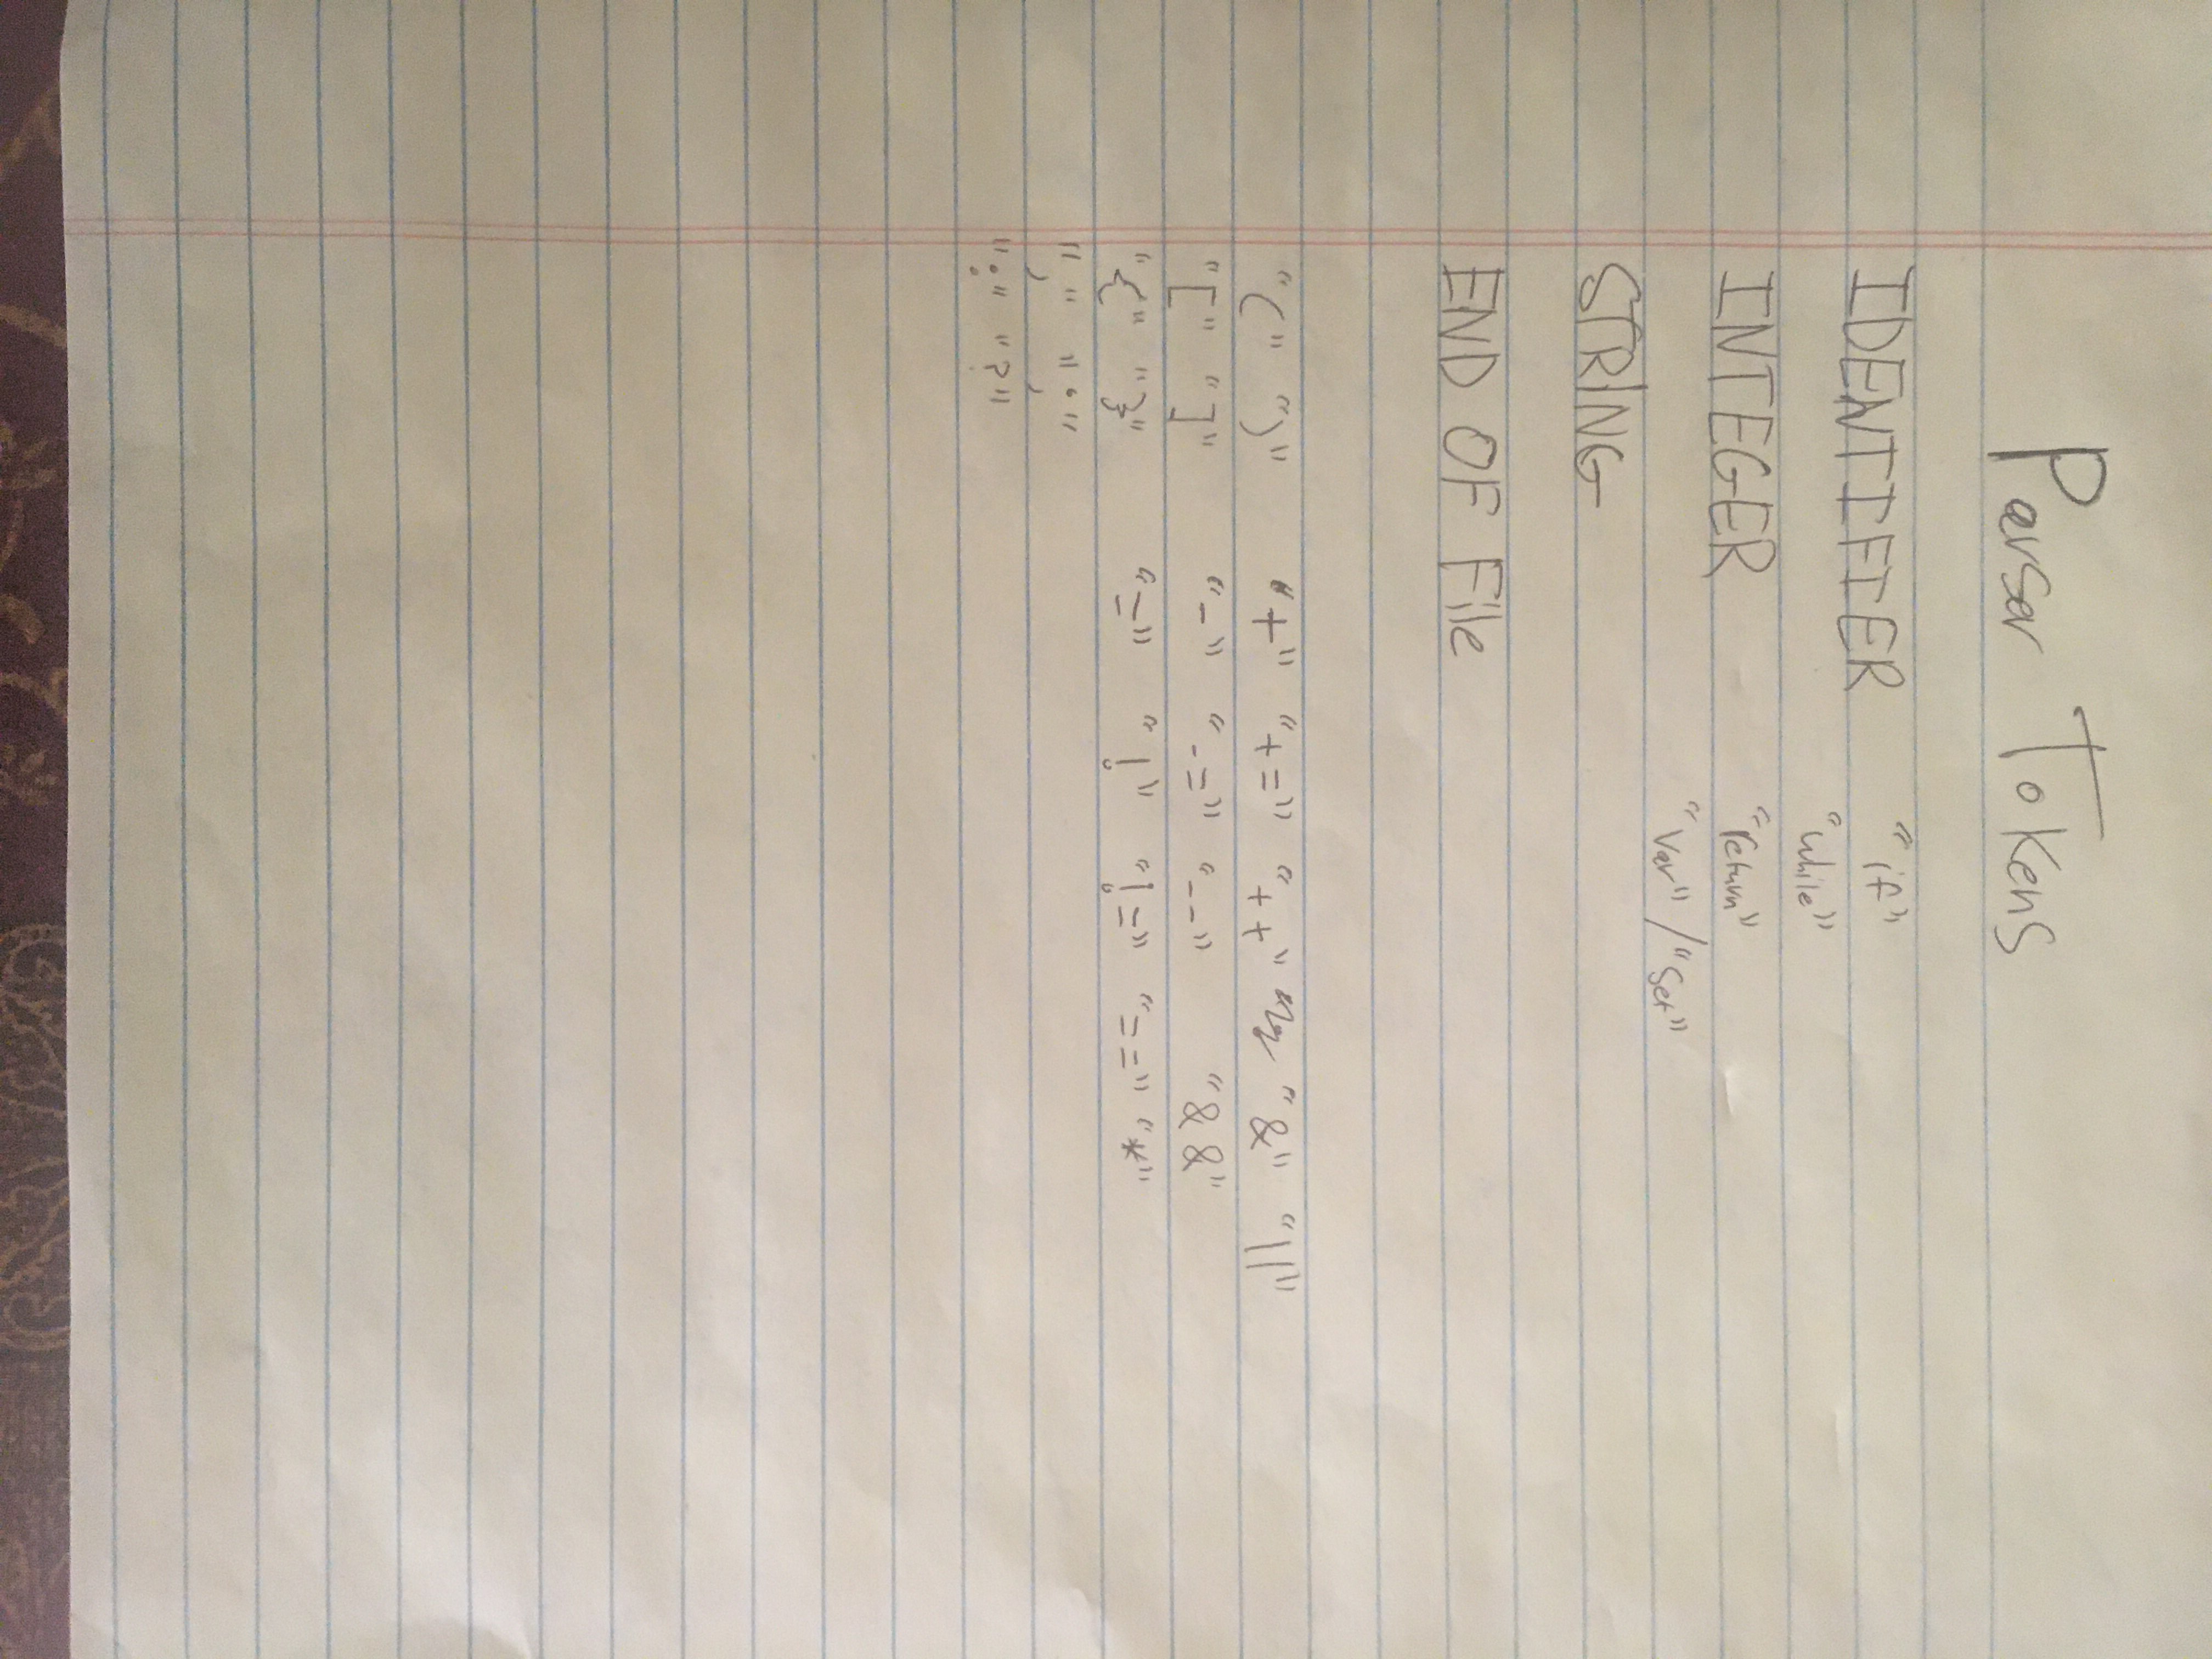 Parser Tokens
IDENTIFIER "if"
"while"
INTEGER "return"
"var" / "set"
STRING
END OF File
"(" ")" "+" "+=" "++" "&" "||"
"[" "]" "-" "-=" "--" "&&"
"{" "}" "=" "!" "!=" "==" "*"
"," ";"
":" "?"